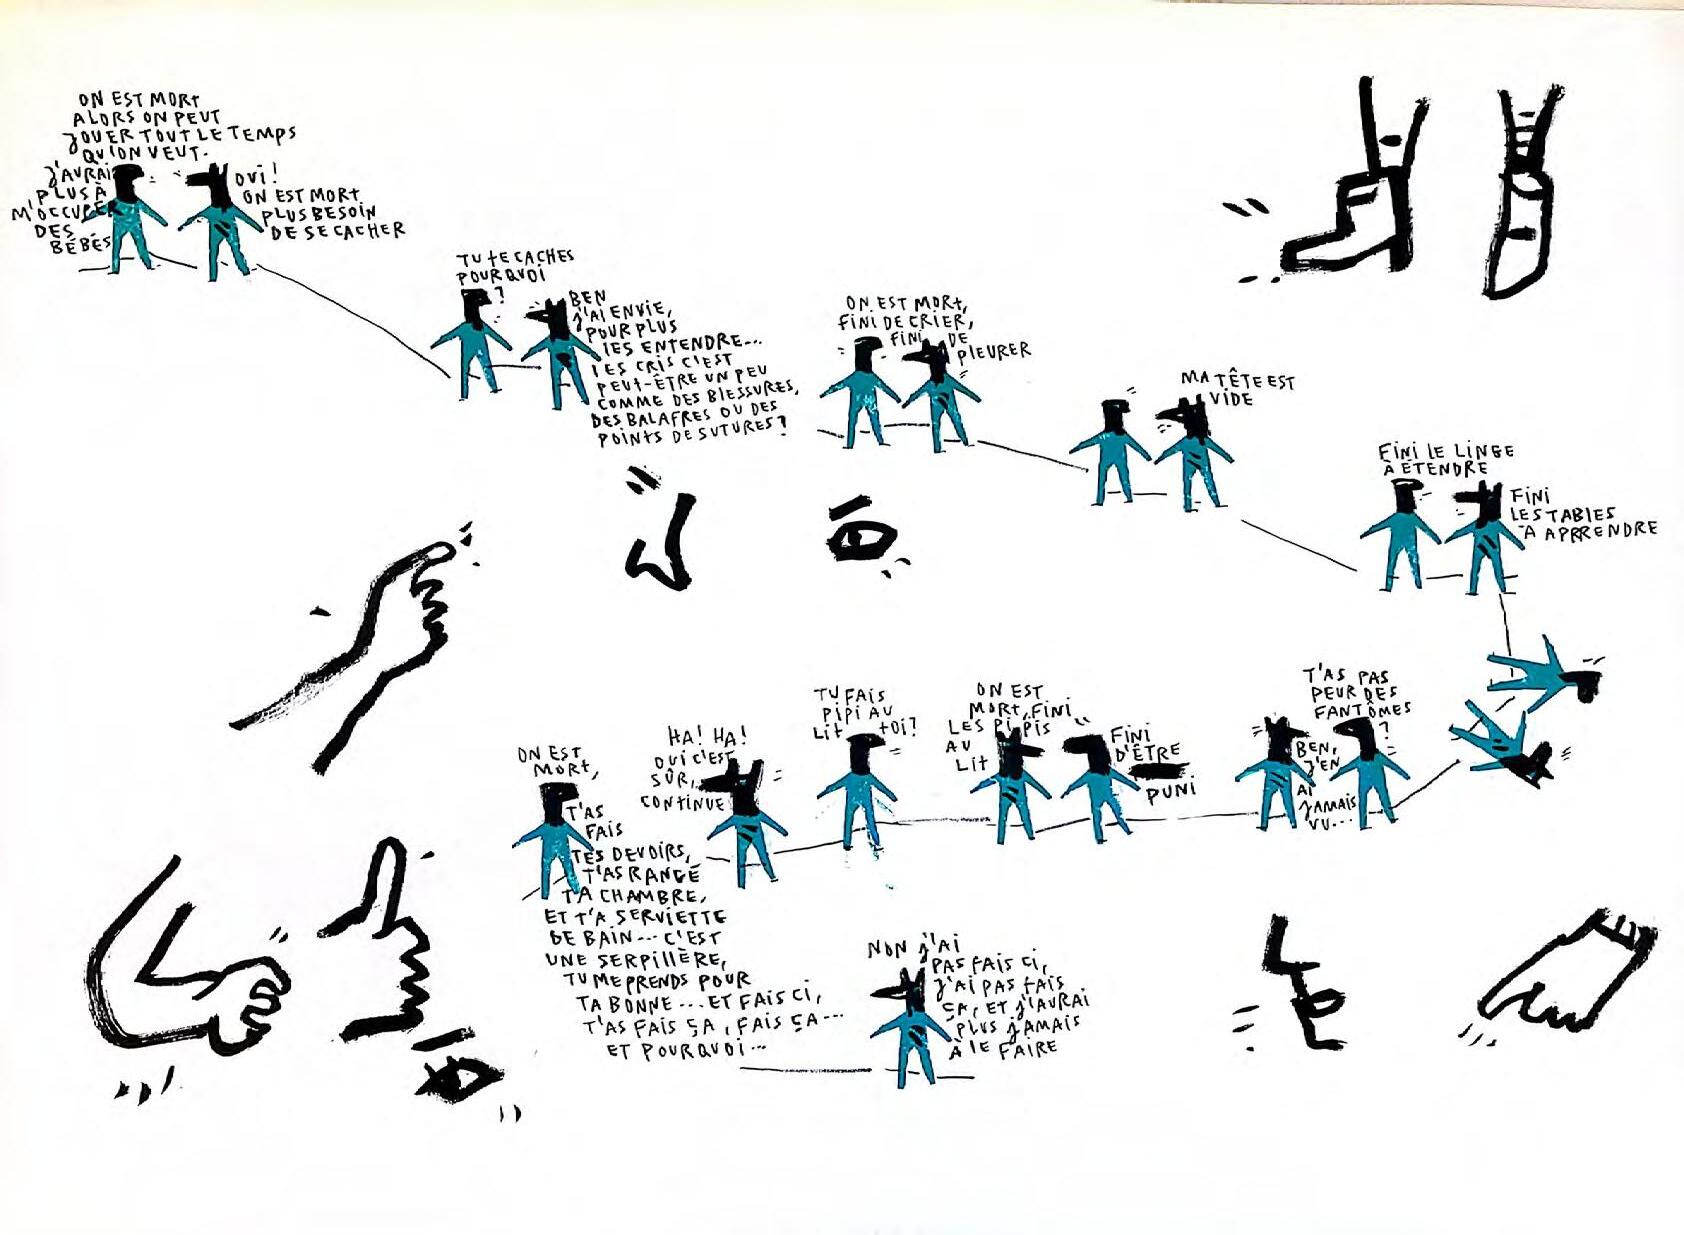 ON EST MORT
ALORS ON PEUT
JOUER TOUT LE TEMPS
QU'ON VEUT.
J'AURAI
PLUS À
M'OCCUPER
DES
BÉBÉS
OUI !
ON EST MORT
PLUS BESOIN
DE SE CACHER
TU TE CACHES
POURQUOI
?
BEN
J'AI ENVIE,
POUR PLUS
LES ENTENDRE...
LES CRIS C'EST
PEUT-ÊTRE UN PEU
COMME DES BLESSURES,
DES BALAFRES OU DES
POINTS DE SUTURES ?
ON EST MORT,
FINI DE CRIER,
FINI DE
PLEURER
MA TÊTE EST
VIDE
FINI LE LINGE
À ÉTENDRE
FINI
LES TABLES
À APRRENDRE
T'AS PAS
PEUR DES
FANTÔMES
?
BEN,
J'EN
AI
JAMAIS
VU...
ON EST
MORT, FINI
LES PIPIS
AU
LIT
FINI
D'ÊTRE
PUNI
TU FAIS
PIPI AU
LIT TOI ?
HA ! HA !
OUI C'EST
SÛR,
CONTINUE
ON EST
MORT,
T'AS
FAIS
TES DEVOIRS,
T'AS RANGÉ
TA CHAMBRE,
ET T'A SERVIETTE
DE BAIN... C'EST
UNE SERPILLÈRE,
TU ME PRENDS POUR
TA BONNE... ET FAIS CI,
T'AS FAIS ÇA, FAIS ÇA...
ET POURQUOI...
NON J'AI
PAS FAIS CI,
J'AI PAS FAIS
ÇA, ET J'AURAI
PLUS JAMAIS
À LE FAIRE